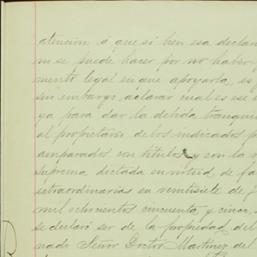 atencion, á que si bien esa declara
ni se puede hacer por no haber
mento legal en que apoyarla, es
sin embargo, aclarar cual es ese
ga para dar la debida tranqui
al propietario de los indicados
amparados con titulos y con la
suprema dictada en virtud de fa
extraordinarias en veintisiete de
mil ochocientos cincuenta y cinco,
se declaró ser de la propiedad del
nado Señor Doctor Martinez del